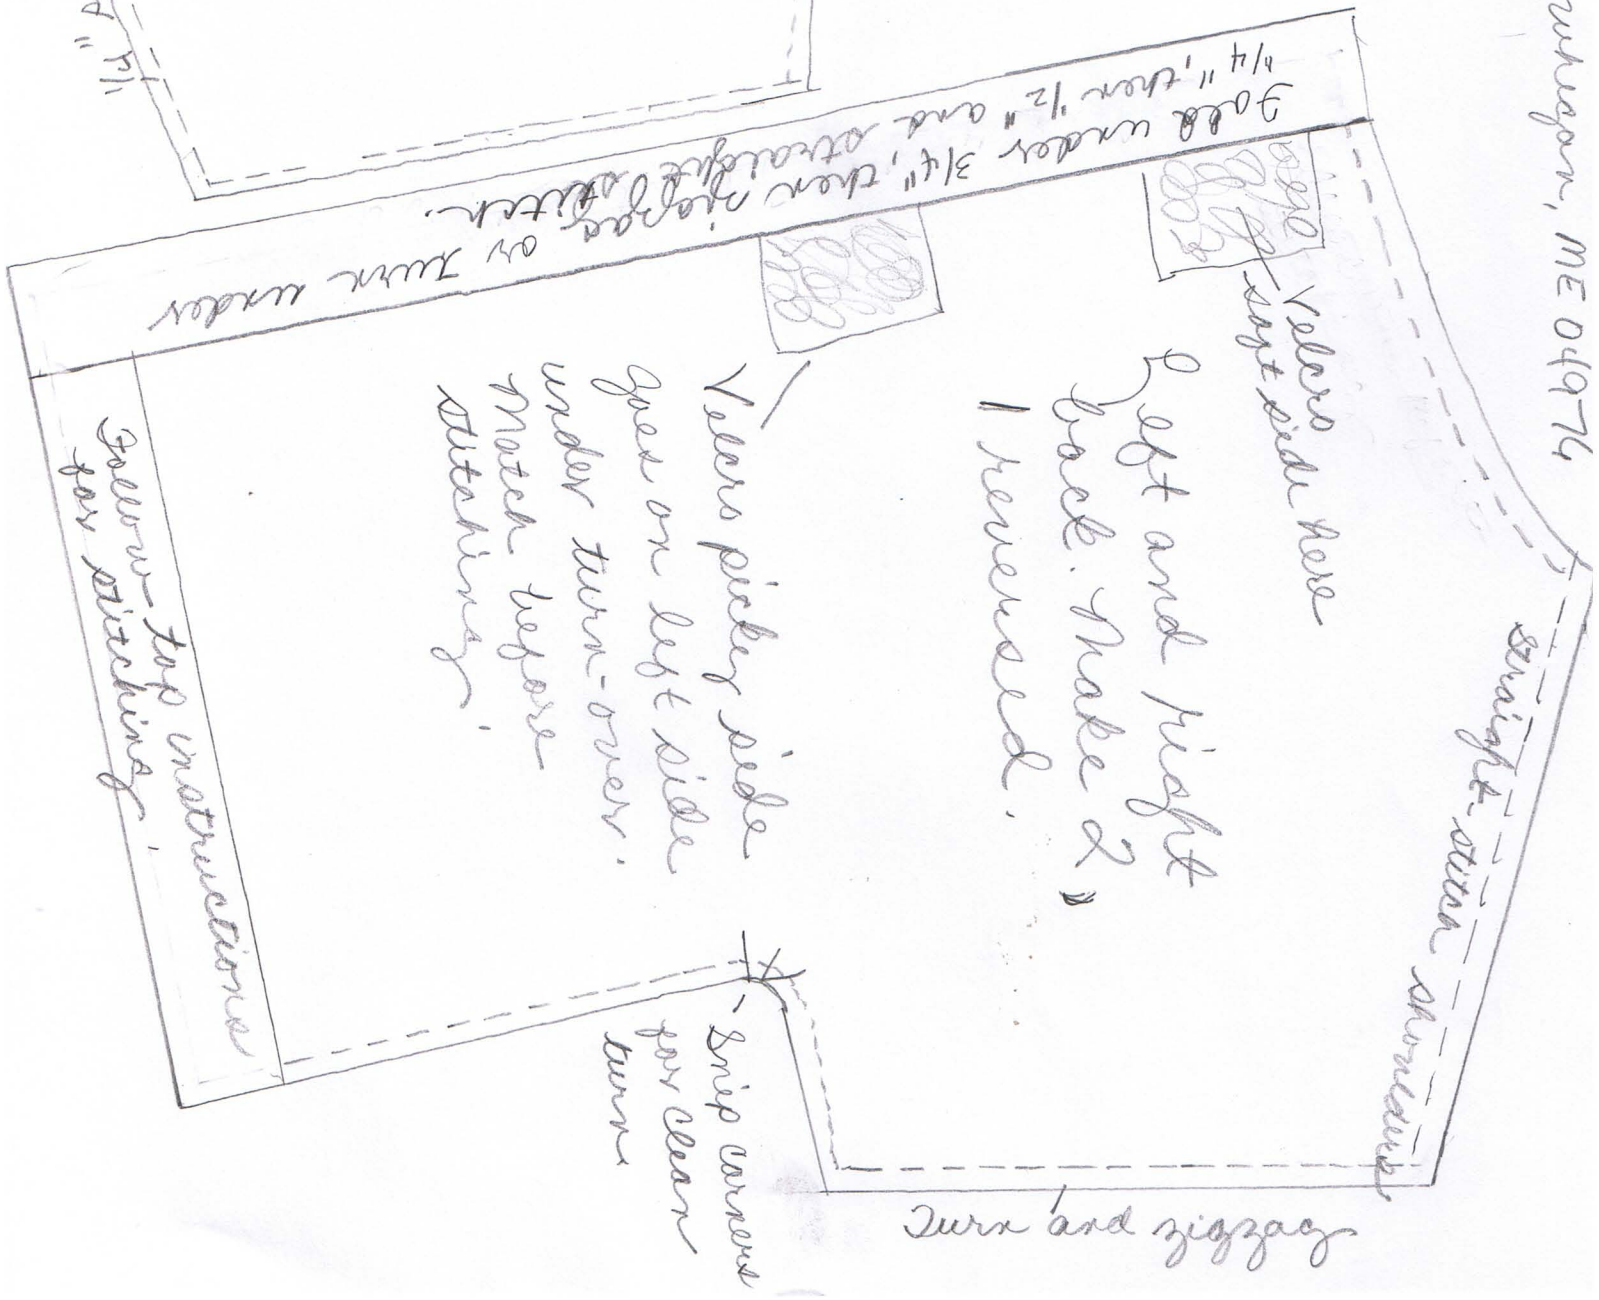 ME 04974
1/4"
Fold under 3/4", then zigzag, or turn under
1/4", then 1/2" and straight stitch.
Velcro
soft side here
straight-stitch shoulders
Left and right
back. Make 2,
1 reversed.
Velcro pickey side
goes on left side
under turn-over.
Match before
stitching.
Follow top instructions
for stitching.
Snip corners
for clean
turn.
Turn and zigzag